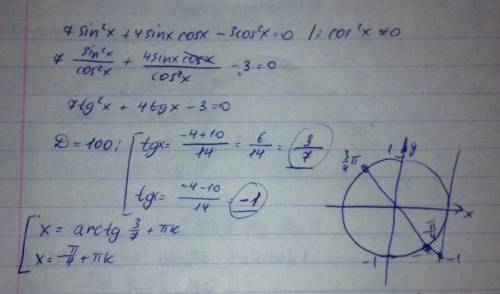 7 sin²x + 4 sinx cosx − 3cos²x = 0 |: cos²x ≠ 0
7 sin²x/cos²x + 4sinx cosx/cos²x − 3 = 0
7tg²x + 4tgx − 3 = 0
D = 100; [ tgx = (−4+10)/14 = 6/14 = 3/7
tgx = (−4−10)/14 = −1
[ x = arctg 3/7 + πk
x = −π/4 + πk
1 y
3/4 π
x
−π/4
−1 −1